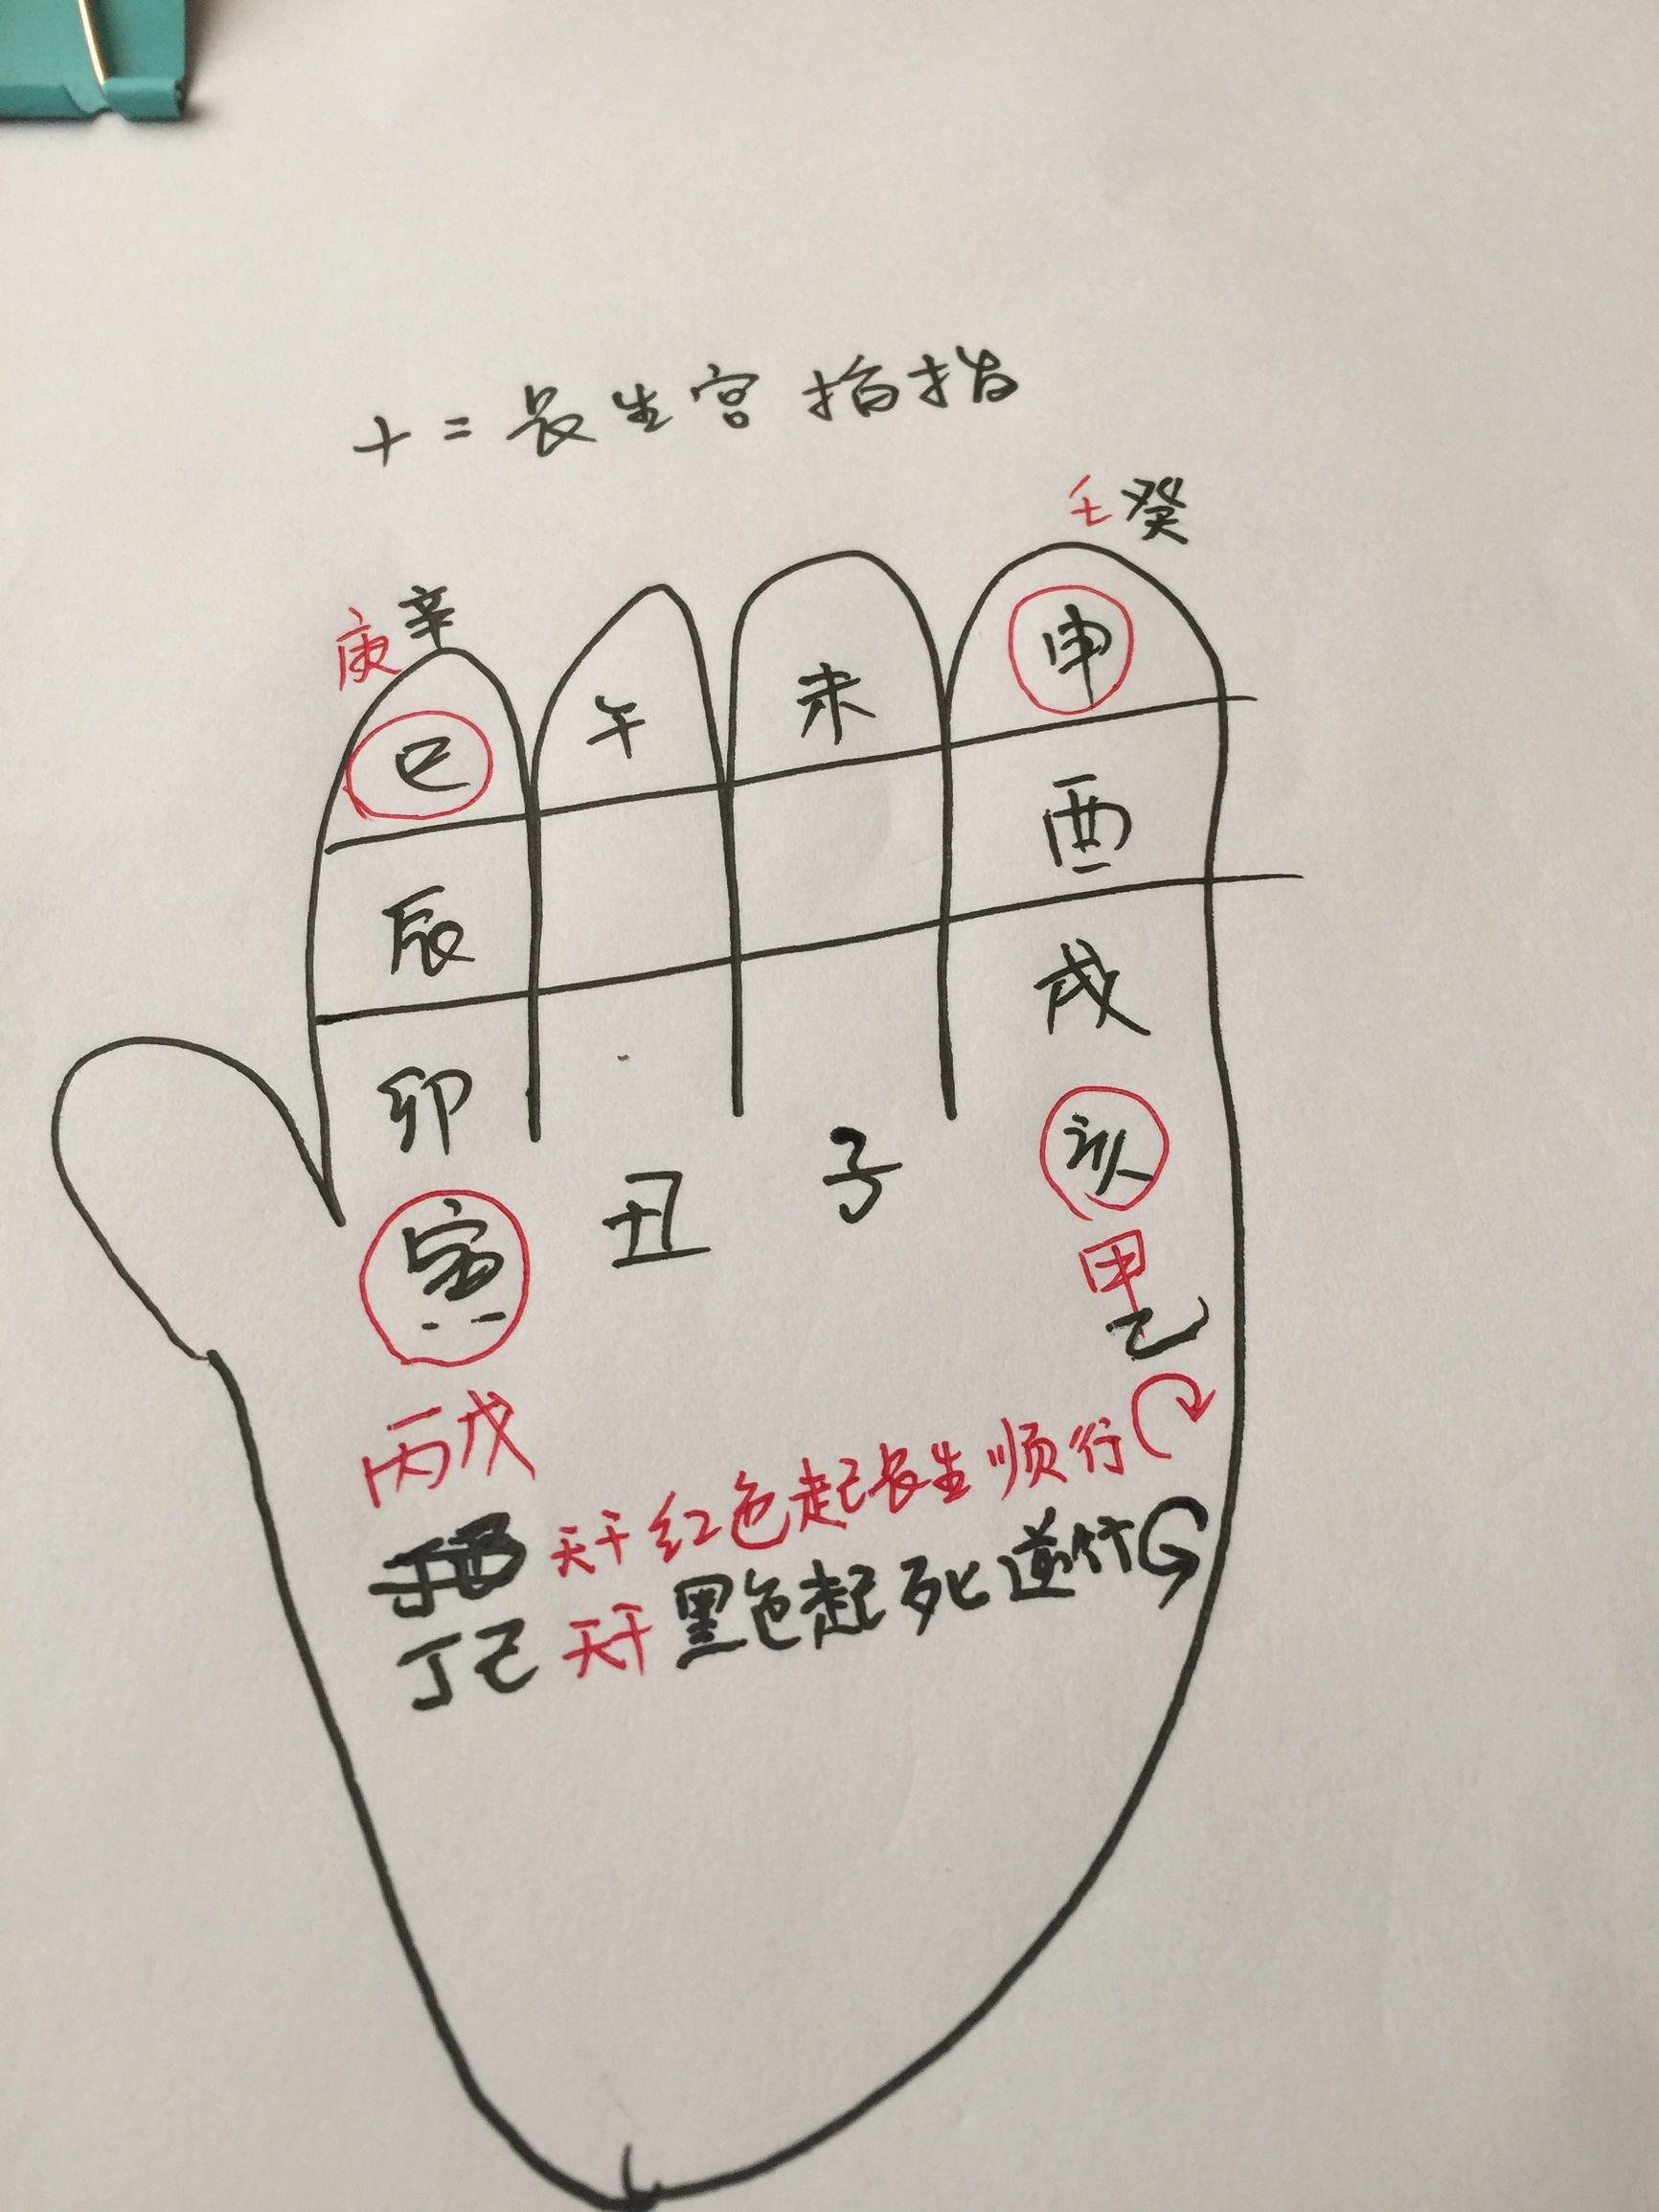 十二長生宫掐指
壬癸
庚辛
巳 午 未 申
辰 酉
卯 戌
寅 丑 子 亥
甲乙
丙戊
天干红色起長生顺行
丁己 天干黑色起死逆行